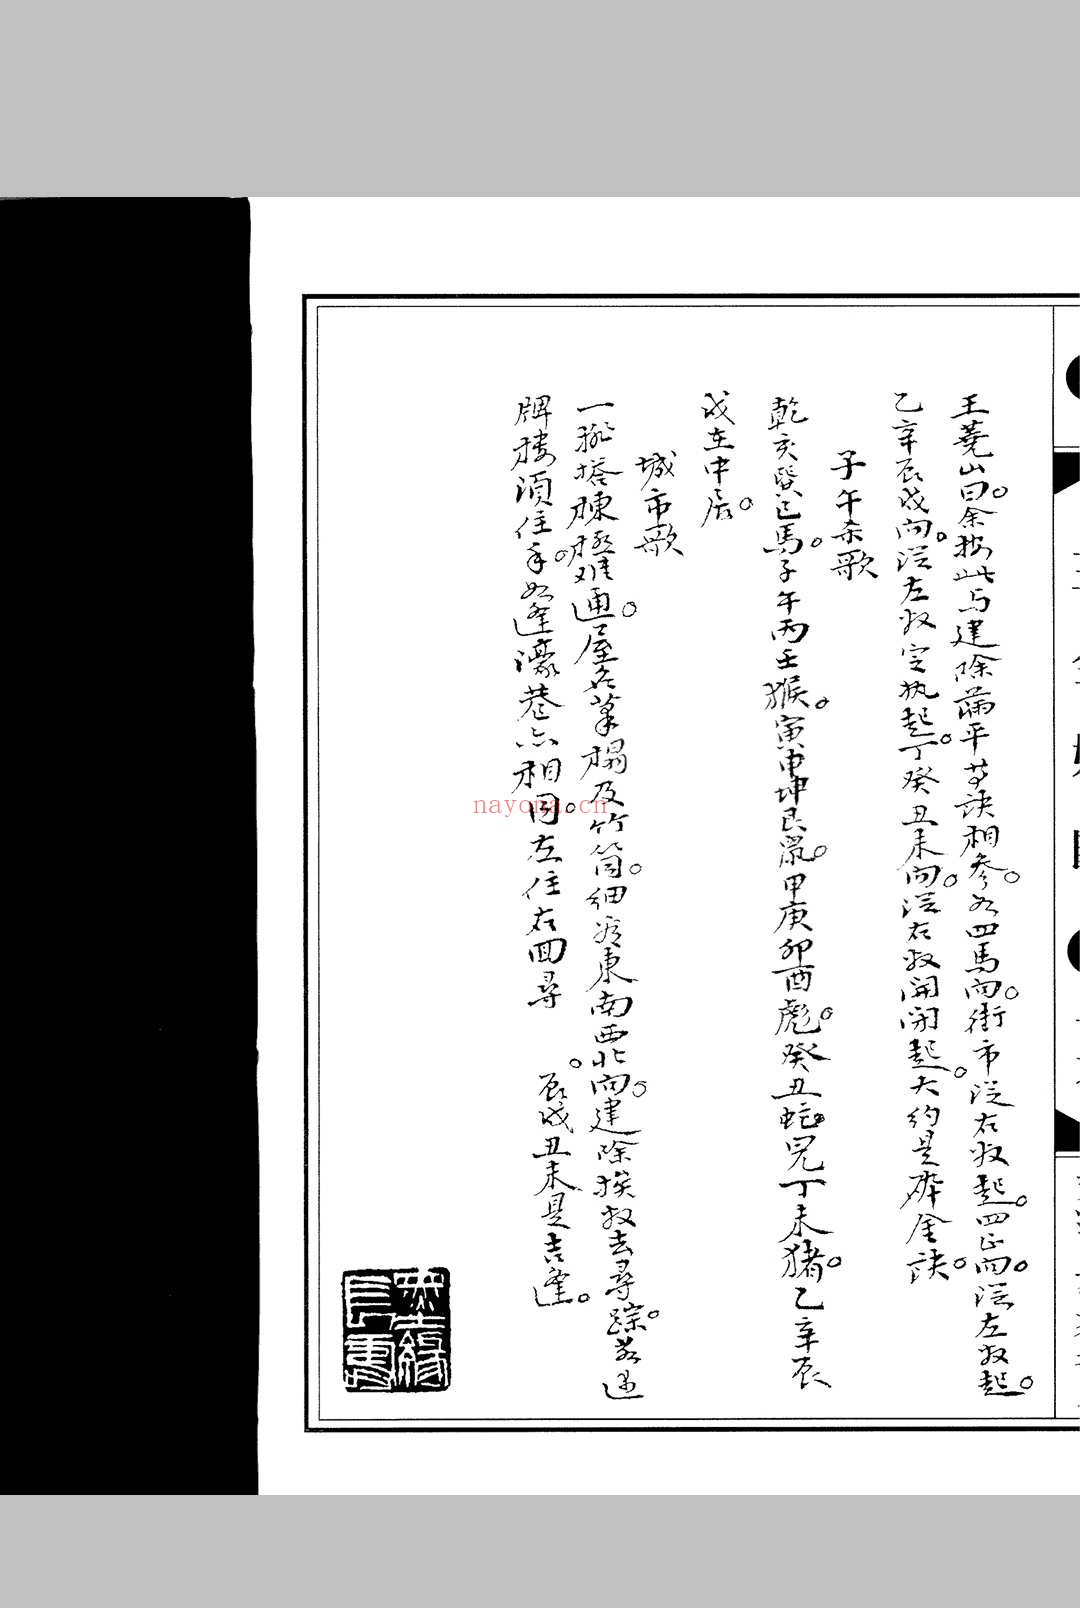 王蕘山曰。余按此与建除滿平等訣相參。如四馬向。街市從右数起。四正向。從左数起。
乙辛辰戌向。從左数定执起。丁癸丑未向。從右数開闭起。大約是碎金訣。
子午杀歌
乾亥巽巳馬。子午丙壬猴。寅申坤艮鼠。甲庚卯酉彪。癸丑蛇兄丁未猪。乙辛辰
戌在中居。
城市歌
一
塔棟極难通。屋名草榻及竹筒。细看東南西北向。建除挨数去尋踪。若遇
牌楼須住手。如逢濠巷亦相同。左住右回尋。辰戌丑未是吉逢。
nayona.cn